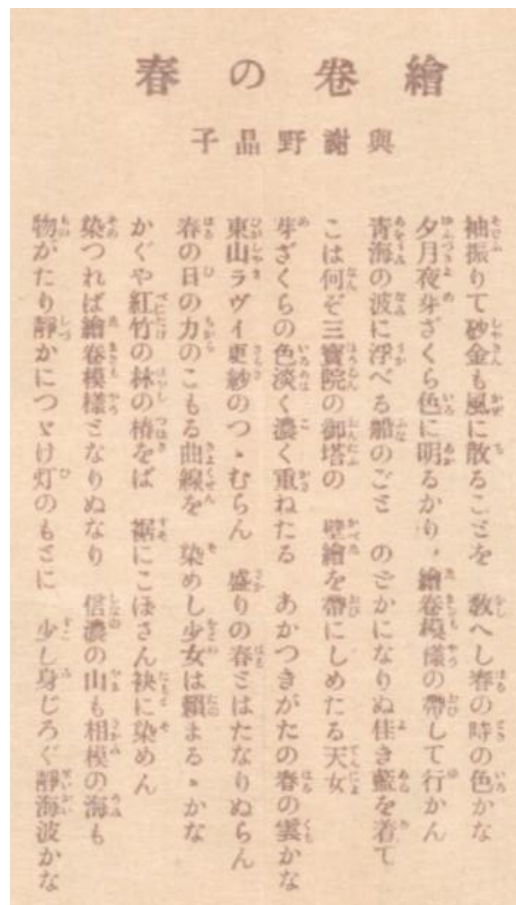 繪卷の春
與謝野晶子
袖振りて砂金も風に散ることを　敎へし春の時の色かな
夕月夜芽ざくら色に明るかり、繪卷模樣の帶して行かん
靑海の波に浮べる船のごと　のどかになりぬ佳き藍を着て
こは何ぞ三寶院の御塔の　壁繪を帶にしめたる天女
芽ざくらの色淡く濃く重ねたる　あかつきがたの春の雲かな
東山ラヴイ更紗のつゝむらん　盛りの春とはたなりぬらん
春の日の力のこもる曲線を　染めし少女は賴まるゝかな
かぐや紅竹の林の椿をば　裾にこぼさん袂に染めん
染つれば繪卷模樣となりぬなり　信濃の山も相模の海も
物がたり靜かにつゞけ灯のもとに　少し身じろぐ靜海波かな